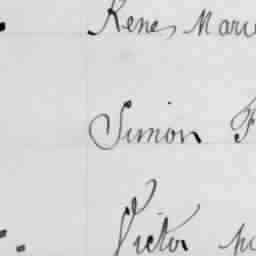 Renes Marie
Simon F
Victor